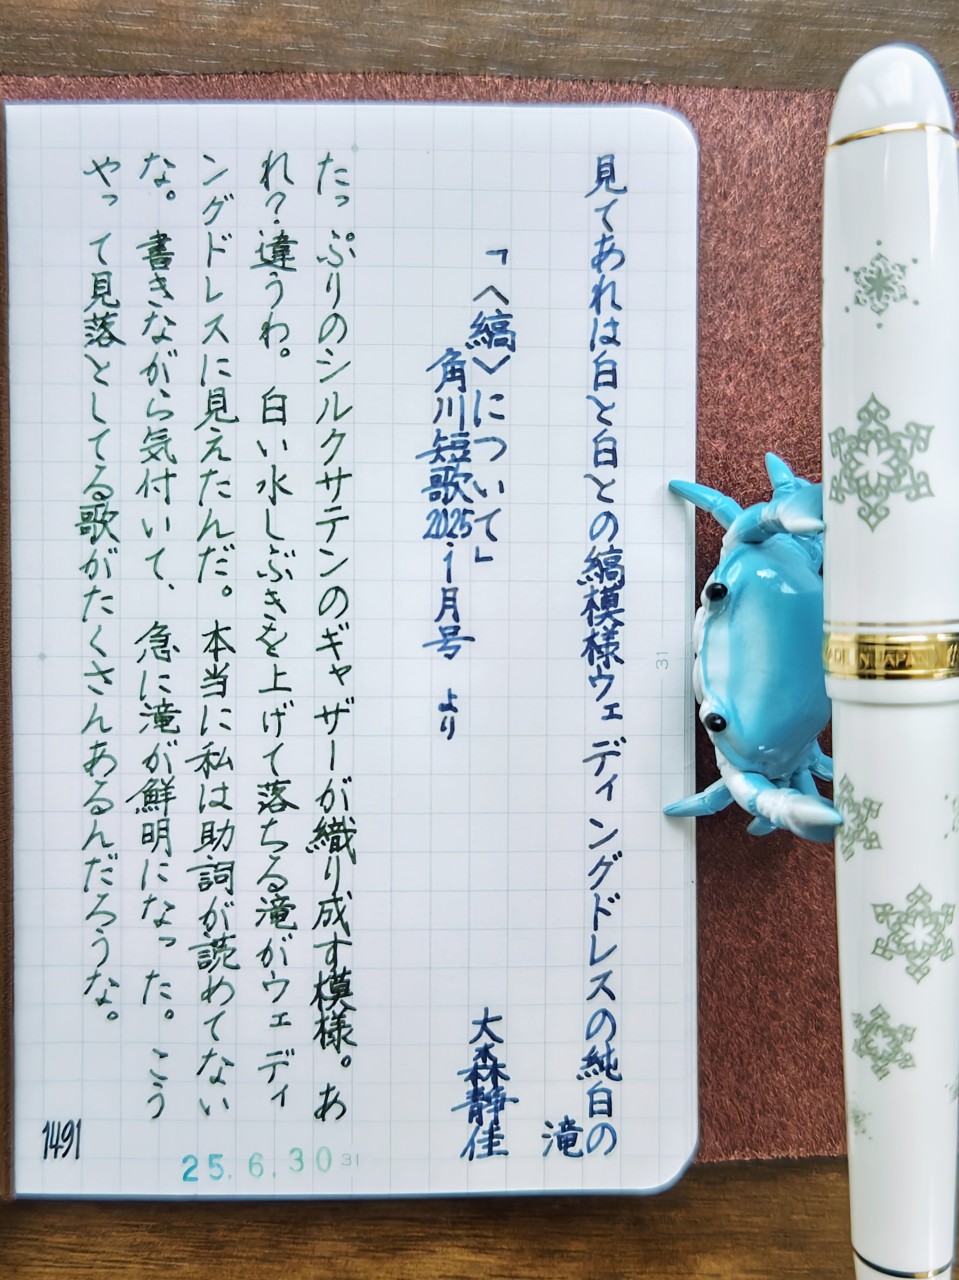 見てあれは白と白との縞模様ウェディングドレスの純白の
滝
「〈縞〉について」
角川短歌2025.1月号 より
大森静佳
たっぷりのシルクサテンのギャザーが織り成す模様。あ
れ?違うわ。白い水しぶきを上げて落ちる滝がウェディ
ングドレスに見えたんだ。本当に私は助詞が読めてない
な。書きながら気付いて、急に滝が鮮明になった。こう
やって見落としてる歌がたくさんあるんだろうな。
1491
25.6.30
31
31
MADE IN JAPAN